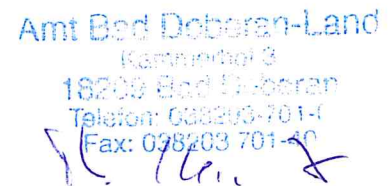 Amt Bad Doberan-Land
Kammerhof 3
18209 Bad Doberan
Telefon: 038203-701-
Fax: 038203 701-